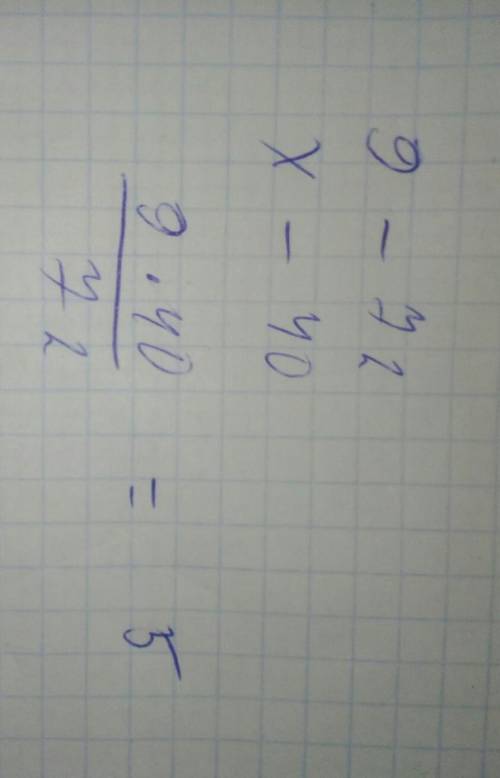 9 - 72
x - 40
9 · 40
72
= 5